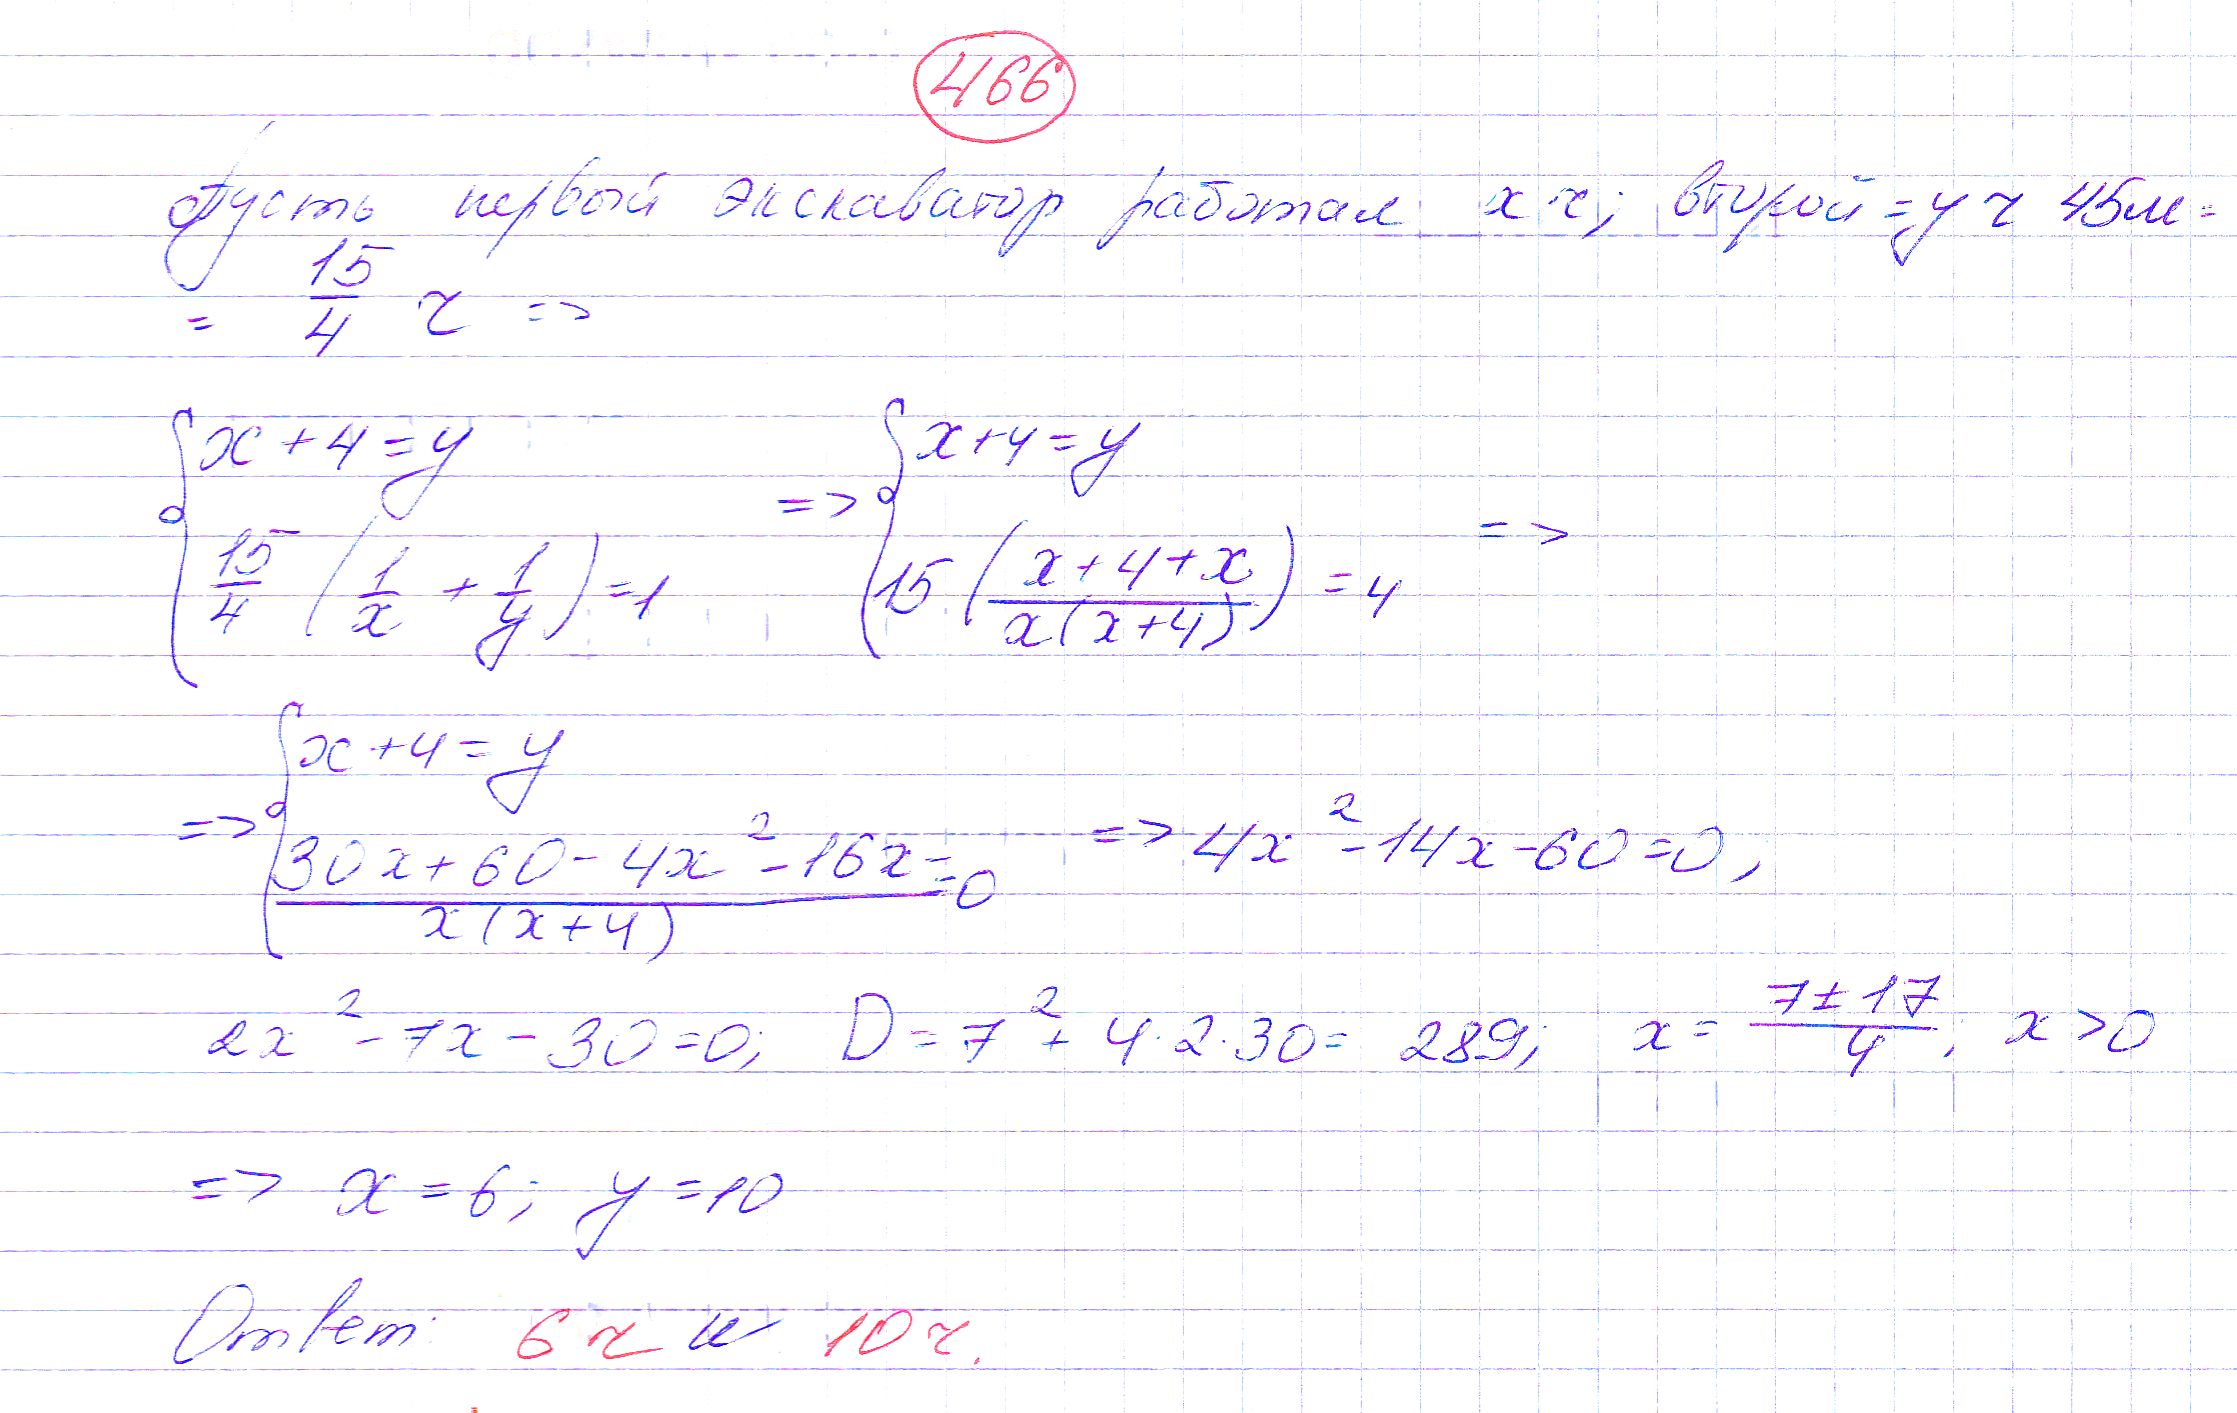 466
Пусть первый экскаватор работал x ч; второй = y ч 45м =
= 15/4 ч =>
{ x + 4 = y
15/4 (1/x + 1/y) = 1 => { x + 4 = y
15 ((x + 4 + x)/(x(x + 4))) = 4 =>
=> { x + 4 = y
(30x + 60 - 4x² - 16x =)/(x(x + 4)) = 0 => 4x² - 14x - 60 = 0,
2x² - 7x - 30 = 0; D = 7² + 4·2·30 = 289; x = (7 ± 17)/4; x > 0
=> x = 6; y = 10
Ответ: 6 ч и 10 ч.